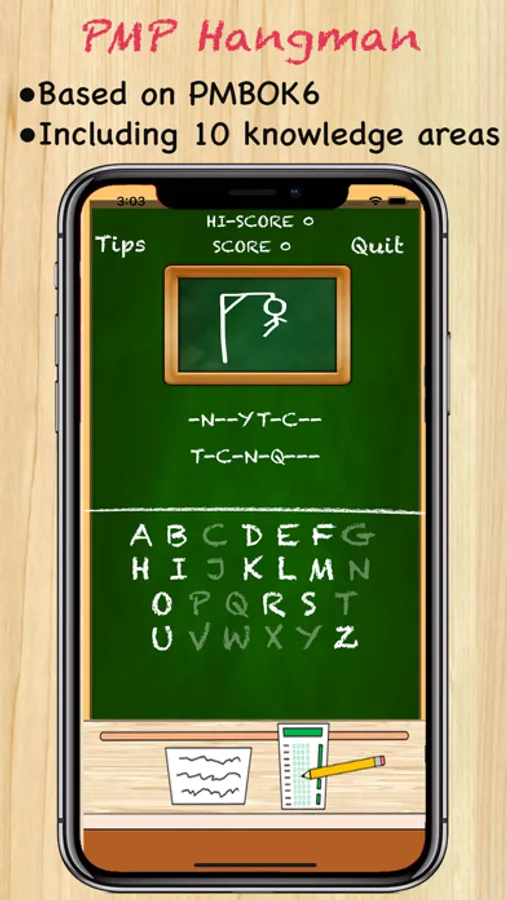 PMP Hangman
●Based on PMBOK6
●Including 10 knowledge areas
3:03
HI-SCORE 0
Tips SCORE 0 Quit
-N--YT-C--
T-C-N-Q---
A B C D E F G
H I J K L M N
O P Q R S T
U V W X Y Z